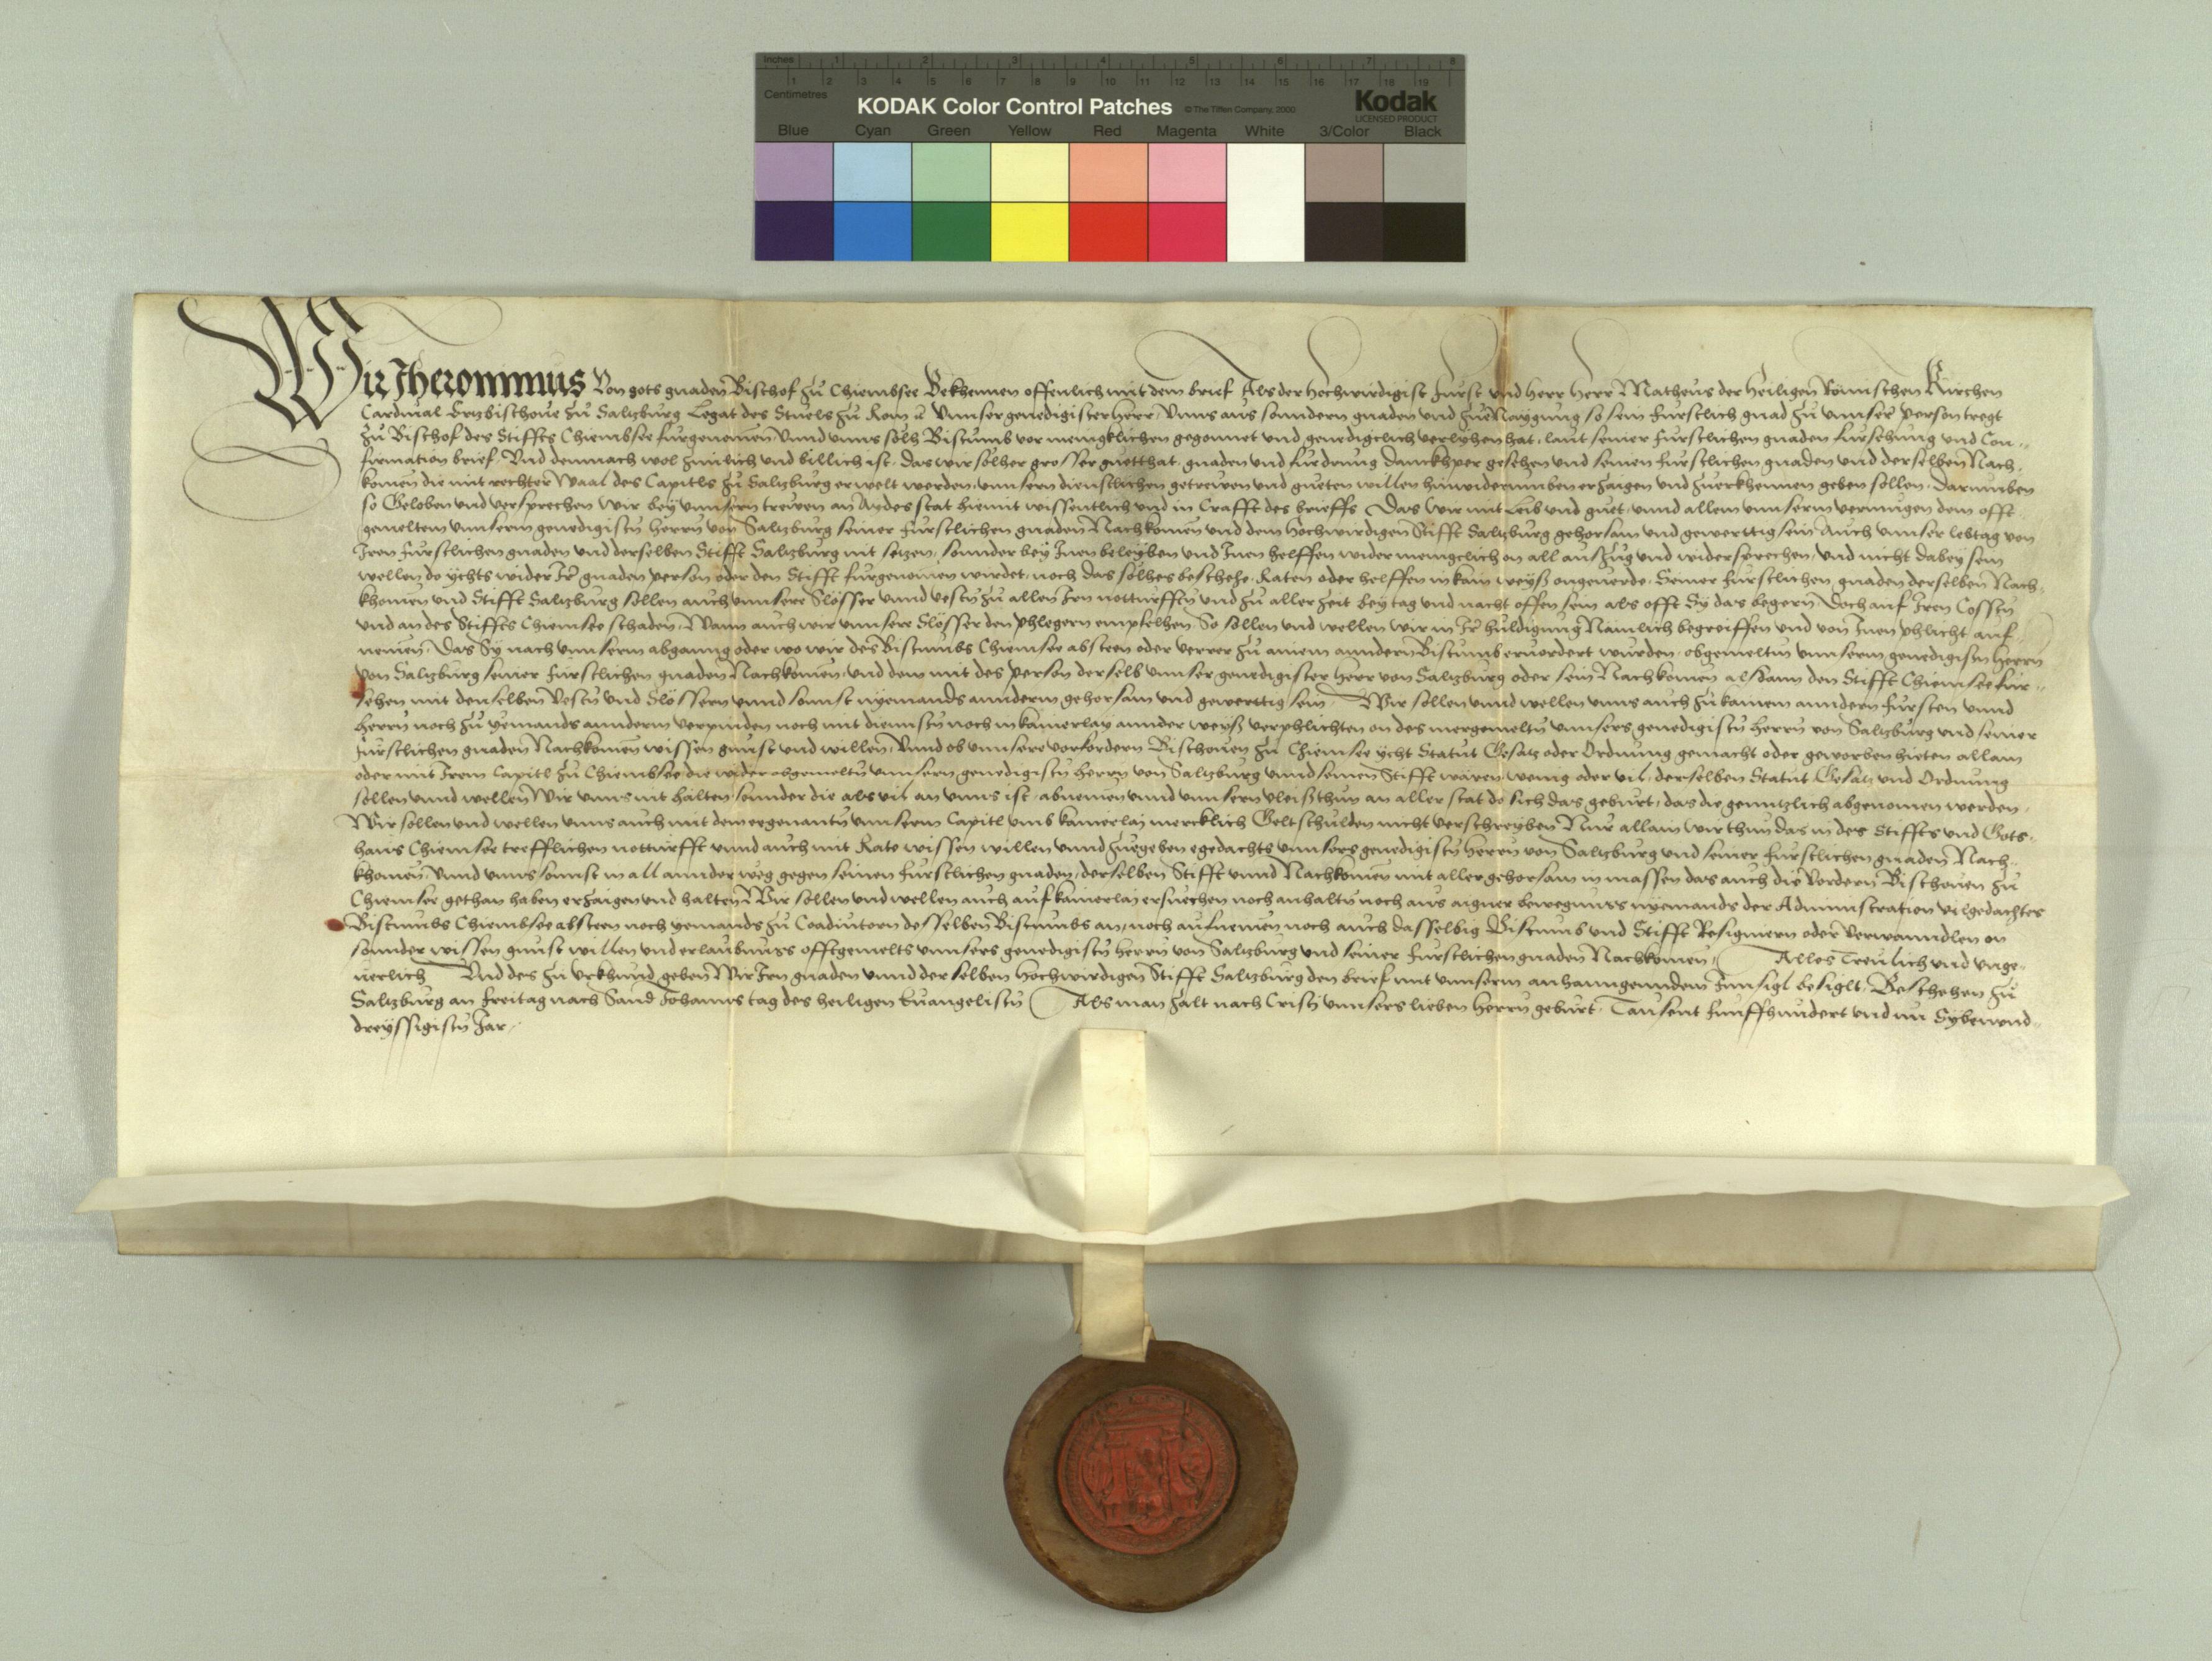 Inches 1 2 3 4 5 6 7 8
1 2 3 4 5 6 7 8 9 10 11 12 13 14 15 16 17 18 19
Centimetres
KODAK Color Control Patches © The Tiffen Company, 2000 Kodak
LICENSED PRODUCT
Blue Cyan Green Yellow Red Magenta White 3/Color Black
Wir Jheronimus Von gots gnaden Bischof zů Chiembsee Bekhennen offenlich mit dem brief Als der Hochwirdigist Fürst und Herr Herr Matheus der Heiligen Römischen Kirchen
Cardinal Ertzbischove zů Saltzburg Legat des Stuels zů Rom unnser genedigister Herr, Unns aus sonndern gnaden und zůenaygung so sein Fürstlich gnad zů unnser person tregt
zů Bischof des Stiffts Chiembsee fürgenomen Unnd unns sölh Bistumb vor menigklichen gegonnet und genedigclich verlyhen hat, laut seiner Fürstlichen gnaden fürsehung und Con-
firmation brief, Und demnach wol zimlich und billich ist, das wir sölher grosser guetthat, gnaden und fürdrung danckhper gesehen und seinen Fürstlichen gnaden und derselben Nach-
komen die mit rechter Waal des Capitls zů Saltzburg erwelt werden, unnsern dienstlichen getrewen und gueten willen hinwiderumben erzaigen und zuerkhennen geben sollen, Darumben
so Geloben und versprechen Wir bey unnsern trewen an Aydes stat hiemit wissentlich und in Crafft des brieffs Das Wir mit Leib und guet, unnd allem unnserm vermugen dem offt-
gemeltem unnserm genedigistn Herrn von Saltzburg seiner Fürstlichen gnaden Nachkomen und dem Hochwirdigen Stifft Saltzburg gehorsam und gewerttig sein Auch unnser lebtag von
Iren Fürstlichen gnaden und derselben Stifft Saltzburg nit setzen, sonnder bey Inen beleyben und Inen helffen wider menigclich on all auszüg und widersprechen, und nicht dabey sein
wellen do ychts wider Ir gnaden person oder den Stifft fürgenomen wirdet, noch das sölhes beschehe, Raten oder helffen in kain weyß ongeuerde, Seiner Fürstlichen gnaden derselben Nach-
khomen und Stifft Saltzburg sollen auch unnsere Slösser unnd vestn zů allen Irn notturfftn und zů aller zeit bey tag und nacht offen sein als offt Sy das begern Doch auf Iren Cosstn
und an des Stiffts Chiemsee schaden, Wann auch wir unnsere Slösser den phlegern empfelhen So sollen und wellen wir in Ir huldigung Nämlich begreiffen und von Inen phlicht auf-
nemen, Das Sy nach unnserm abganng oder wo wir des Bistumbs Chiemsee absteen oder verrer zů ainem anndern Bistumb ervordert wurden, obgemeltn unnserm genedigistn Herrn
von Saltzburg seiner Fürstlichen gnaden Nachkomen, und dem mit des person derselb unnser genedigister Herr von Saltzburg oder sein Nachkomen alsdann den Stifft Chiemsee für-
sehen mit denselben Vestn und Slössern unnd sonnst nyemands annderm gehorsam und gewerttig sein, Wir sollen unnd wellen unns auch zů kainem anndern Fürsten unnd
Herrn noch zů yemands annderm verpinden noch mit diennstn noch in kainerlay annder weyß verphlichten on des mergemeltn unnsers genedigistn Herrn von Saltzburg und seiner
Fürstlichen gnaden Nachkomen wissen gunst und willen, Unnd ob unnsere vorfordern Bischouen zů Chiemsee ycht Statut Gesatz oder Ordnung gemacht oder geworben hieten allain
oder mit Irem Capitl zů Chiembsee die wider obgemeltn unnsern genedigistn Herrn von Saltzburg unnd seinen Stifft wären wenig oder vil, derselben Statut Gesatz und Ordnung
sollen unnd wellen Wir unns nit halten sonnder die als vil an unns ist, abnemen unnd unnsern vleiß thun an aller stat do sich das geburt, das die genntzlich abgenomen werden,
Wir sollen und wellen unns auch mit dem eegenantn unnserm Capitl umb kainerlaj mercklich Geltschulden nicht verschreyben Nur allain wir thun das in des Stiffts und Gots-
haus Chiemsee trefflichen notturfft unnd auch mit Rate wissen willen unnd zuegeben egedachts unnsers genedigistn Herrn von Saltzburg und seiner Fürstlichen gnaden Nach-
khomen, Unnd unns sonnst in all annder weg gegen seinen Fürstlichen gnaden, derselben Stifft unnd Nachkomen mit aller gehorsam in massen das auch die Vordern Bischouen zů
Chiemsee gethan haben erzaigen und halten Wir sollen und wellen auch auf kainerlaj ersuechen noch anhaltn noch aus aigner bewegnuss nyemands der Administration vilgedachtes
Bistumbs Chiembsee absteen noch yemands zů Coadiutorn desselben Bistumbs an, noch aufnemen noch auch dasselbig Bistumb und Stifft Resigniern oder Verwanndlen on
sonnder wissen gunst willen und erlaubnuss offtgemelts unnsers genedigistn Herrn von Saltzburg und seiner Fürstlichen gnaden Nachkomen, Alles Treulich und unge-
uerlich Und des zu urkhund geben Wir Irn gnaden unnd derselben Hochwirdigen Stifft Saltzburg den brief mit unnserm anhanngenndem Innsigl besiglt, Beschehen zů
Saltzburg an Freitag nach Sand Johanns tag des heiligen Euangelistn Als man zalt nach Cristj unnsers lieben Herrn geburt, Tausent Funffhundert und im Sybenund-
dreyssigistn Jar,